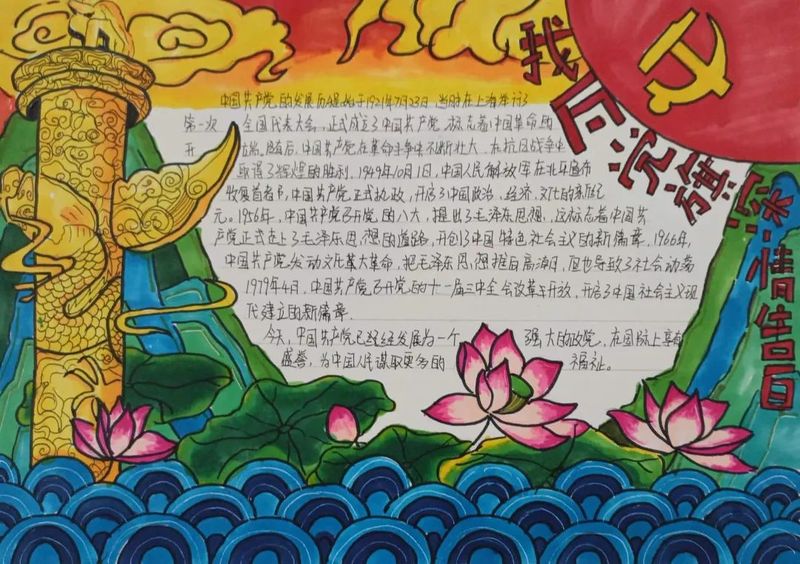 我可完璧深情告白
中国共产党的发展历程始于1921年7月23日,当时在上海举行了
第一次 全国代表大会,正式成立了中国共产党,标志着中国革命的
开 端。随后,中国共产党在革命斗争中不断壮大,在抗日战争中
取得了辉煌的胜利。1949年10月1日,中国人民解放军在北平宣布
收复首都,中国共产党正式执政,开启了中国政治、经济、文化的新纪
元。1956年,中国共产党召开党的八大,提出了毛泽东思想,这标志着中国共
产党正式走上了毛泽东思想的道路,开创了中国特色社会主义的新篇章。1966年,
中国共产党发动文化革大革命,把毛泽东思想推向高潮,但也导致了社会动荡
1979年4月,中国共产党召开党的十一届三中全会改革开放,开启了中国社会主义现
代建立的新篇章.
今天,中国共产党已经经发展为一个 强大的政党,在国际上享有
盛誉,为中国人民谋取更多的 福祉。